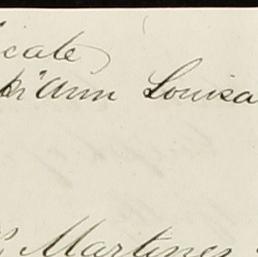 icate
"Ann Louisa
Martines